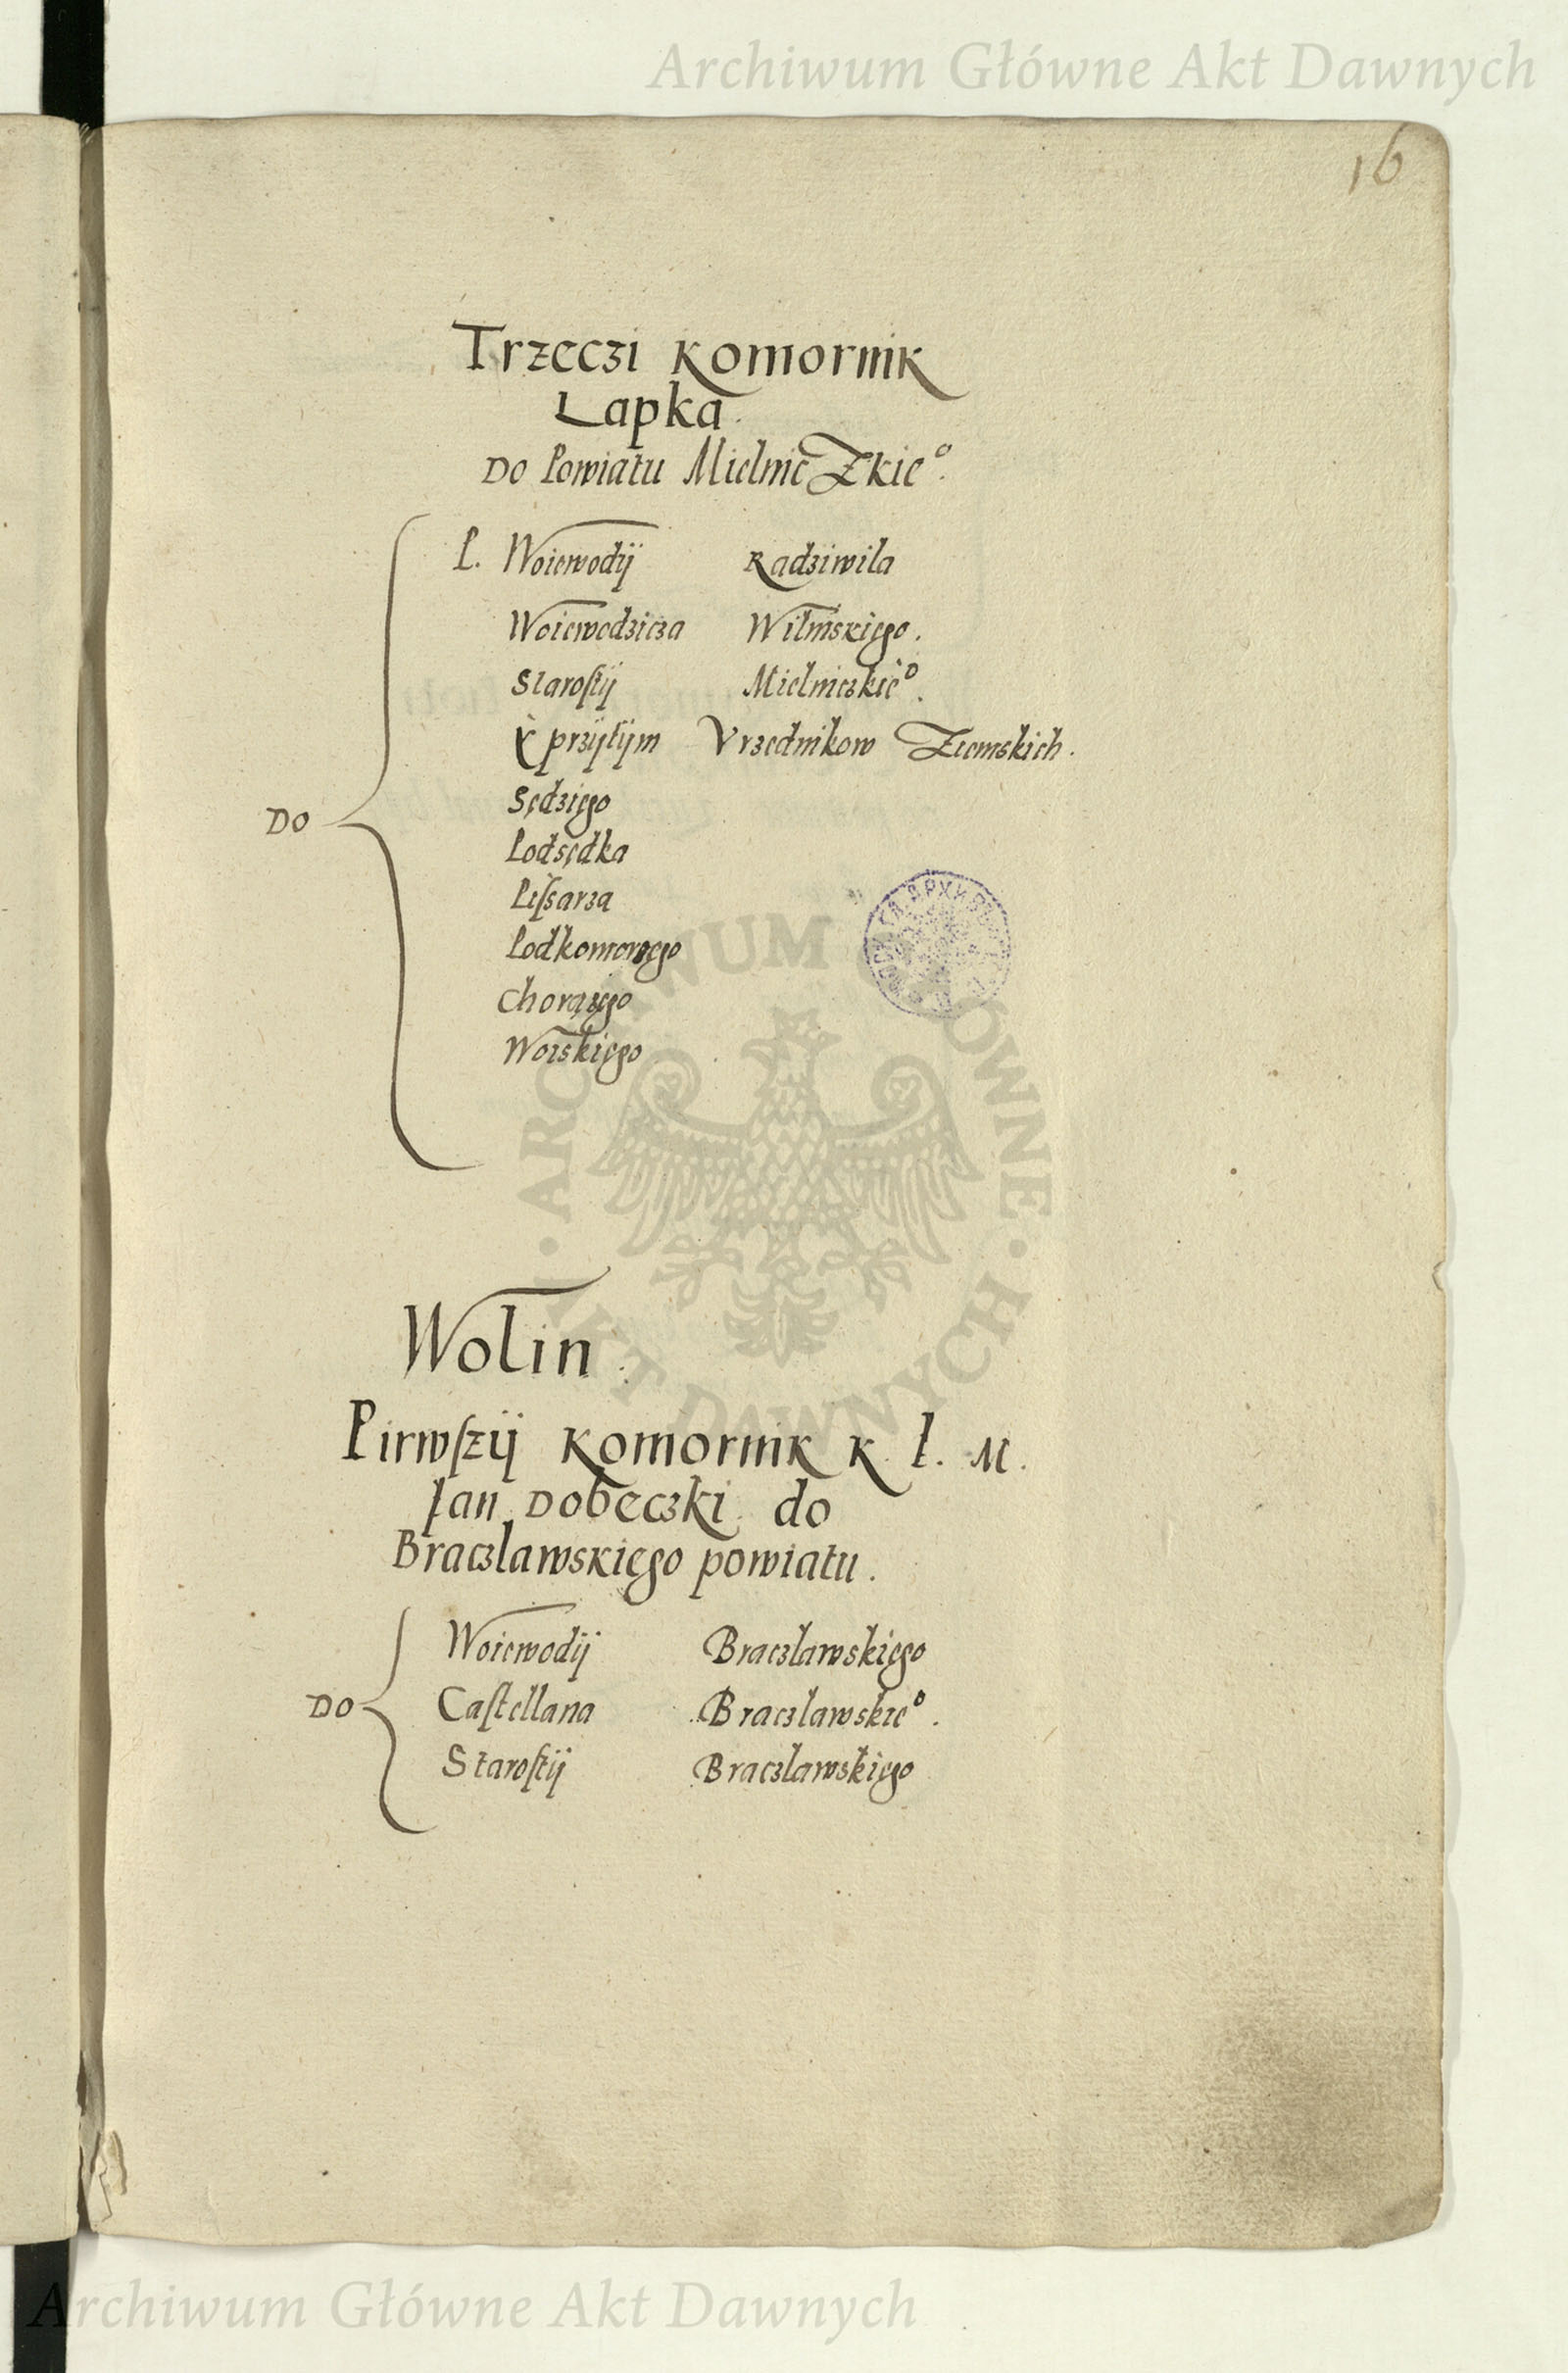 Archiwum Główne Akt Dawnych
16
Trzeczi Komornik
Lapka.
Do Powiatu MielnicZkie°.
P. Woiewodÿ Radziwila
Woiewodzicza Wilnskiego.
Starostÿ Mielniczkie°.
przÿtÿm Vrzednikow Ziemskich.
Sędziego
Podsędka
Pissarza
Podkomorzego
Chorążego
Woiskiego
Do
ARCHIWUM GŁÓWNE · AKT DAWNYCH ·
Wolin.
Pirwszÿ Komornik K. J. M.
Jan Dobeczki do
Braczlawskiego powiatu.
Do
Woiewodÿ Braczlawskiego
Castellana Braczlawskie°.
Starostÿ Braczlawskiego
Archiwum Główne Akt Dawnych